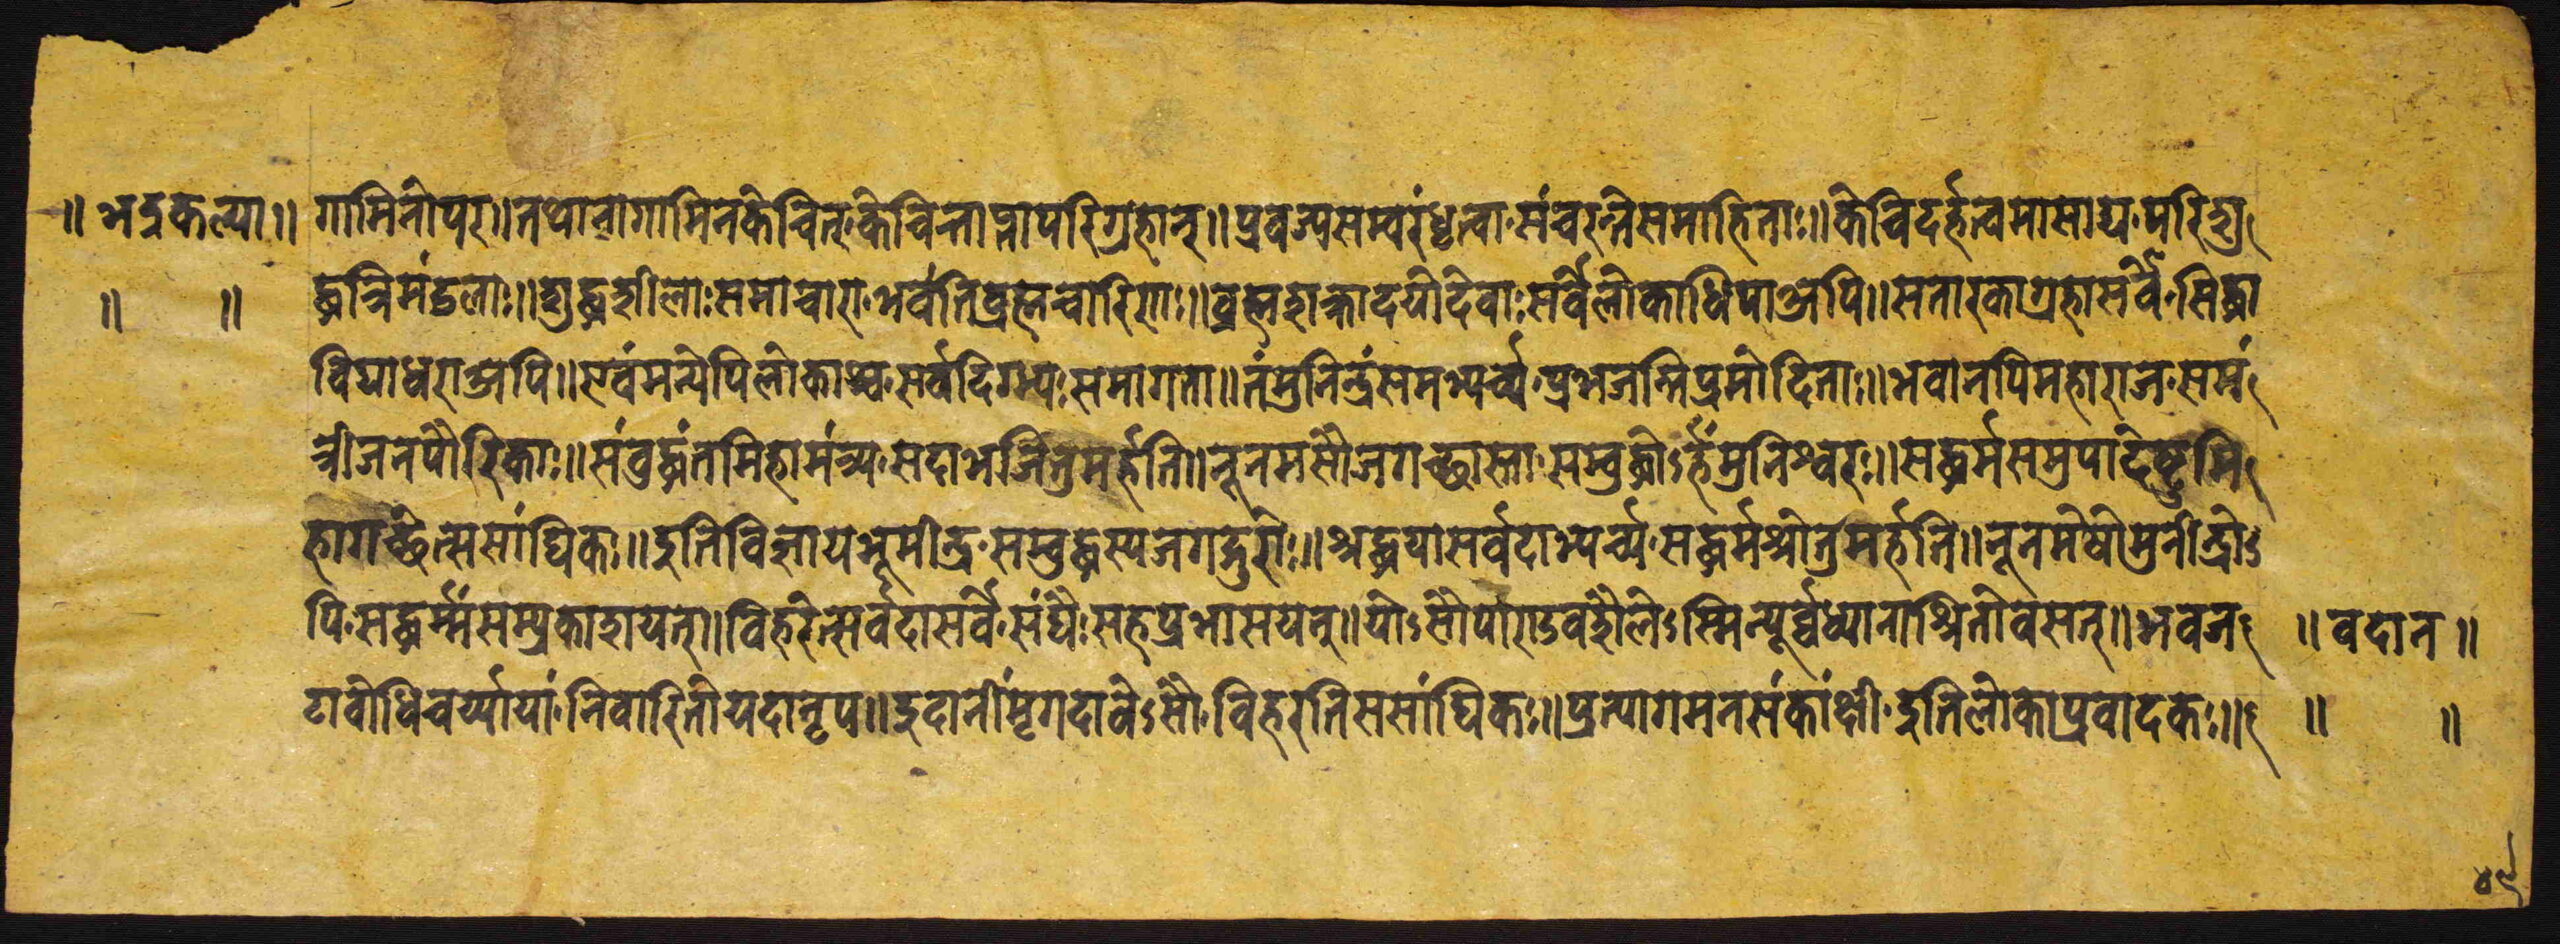 ॥ भद्रकल्पा ॥ गामिनोपरा॥तथानागामिनकेचित्केचित्ताप्तापरिग्रहान्॥प्रवज्यसम्वरंधृत्वा संचरन्तिसमाहिताः॥केचिदर्हत्वमासाद्य परिशु
॥ ॥ द्धत्रिमंडलाः॥शुद्धशीलाःसमाचारा भवंतिब्रह्मचारिणाः॥ब्रह्मशक्रादयोदेवाःसर्वेलोकाधिपाअपि॥सतारकाग्रहासर्वे सिद्धा
विद्याधराअपि॥एवंमन्येपिलोकाश्च सर्वदिग्भ्यःसमागता॥तंमुनिन्द्रंसमभ्यर्च्च्य प्रभजन्तिप्रमोदिताः॥भवानपिमहाराज समं
त्रीजनपौरिकाः॥संबुद्धंतमिहामंत्र्य सदाभजितुमर्हति॥नूनमसौजगच्छास्ता सम्बुद्धोऽर्हंमुनिश्वरः॥सद्धर्मसमुपादेष्टुमि
हागच्छेत्ससांघिकः॥इतिविज्ञायभूमीन्द्र सम्बुद्धस्यजगद्गुरोः॥श्रद्धयासर्वदाभ्यर्च्च्य सद्धर्मश्रोतुमर्हति॥नूनमेषोमुनीन्द्रोऽ
पि सद्धर्म्मंसम्प्रकाशयन्॥विहरेत्सर्वदासर्वे संघैःसहप्रभासयन्॥योऽसौर्पाराऽवशैलेऽस्मिन्पूर्व्वध्यानाश्रितोवसन्॥भवज ॥ वदान ॥
टाबोधिचर्य्यायां निवारितोयदानृप॥इदानींमृगदावेऽसौ विहरतिससांघिकः॥प्रत्यागमनसंकांक्षी इतिलोकाप्रवादकः॥ ॥ ॥
४९